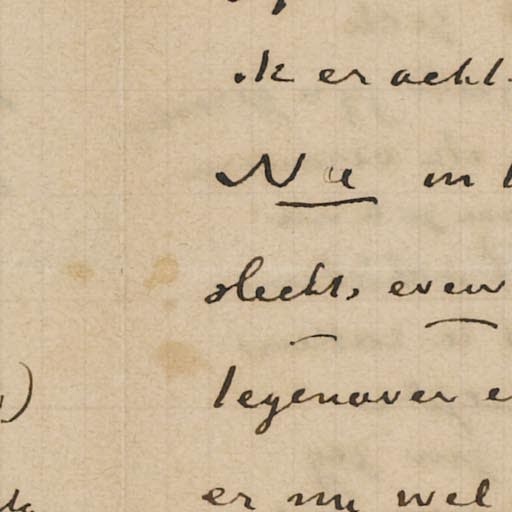 ik er acht
Nu in
slechts even
tegenover e
)
er nu wel